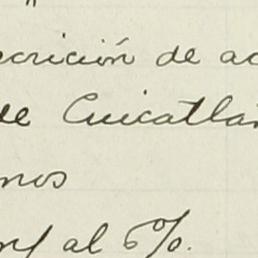 "
ecrición de ac
de Cuicatlán
nos
al 6%.